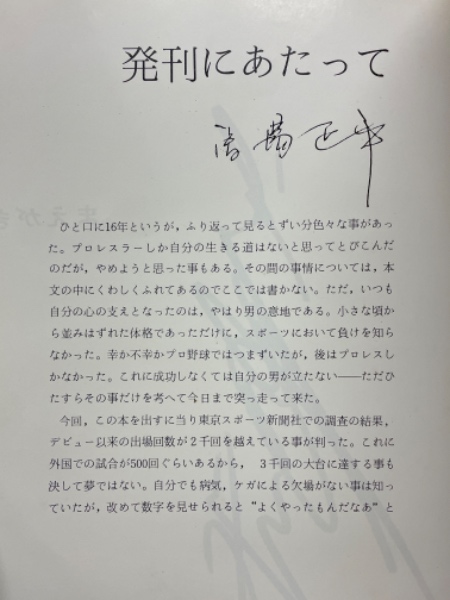 発刊にあたって
馬場正平
ひと口に16年というが，ふり返って見るとずい分色々な事があっ
た。プロレスラーしか自分の生きる道はないと思ってとびこんだ
のだが，やめようと思った事もある。その間の事情については，本
文の中にくわしくふれてあるのでここでは書かない。ただ，いつも
自分の心の支えとなったのは，やはり男の意地である。小さな頃か
ら並みはずれた体格であっただけに，スポーツにおいて負けを知ら
なかった。幸か不幸かプロ野球ではつまずいたが，後はプロレスし
かなかった。これに成功しなくては自分の男が立たない――ただひ
たすらその事だけを考へて今日まで突っ走って来た。
今回，この本を出すに当り東京スポーツ新聞社での調査の結果，
デビュー以来の出場回数が２千回を越えている事が判った。これに
外国での試合が500回ぐらいあるから，３千回の大台に達する事も
決して夢ではない。自分でも病気，ケガによる欠場がない事は知っ
ていたが，改めて数字を見せられると“よくやったもんだなあ”と